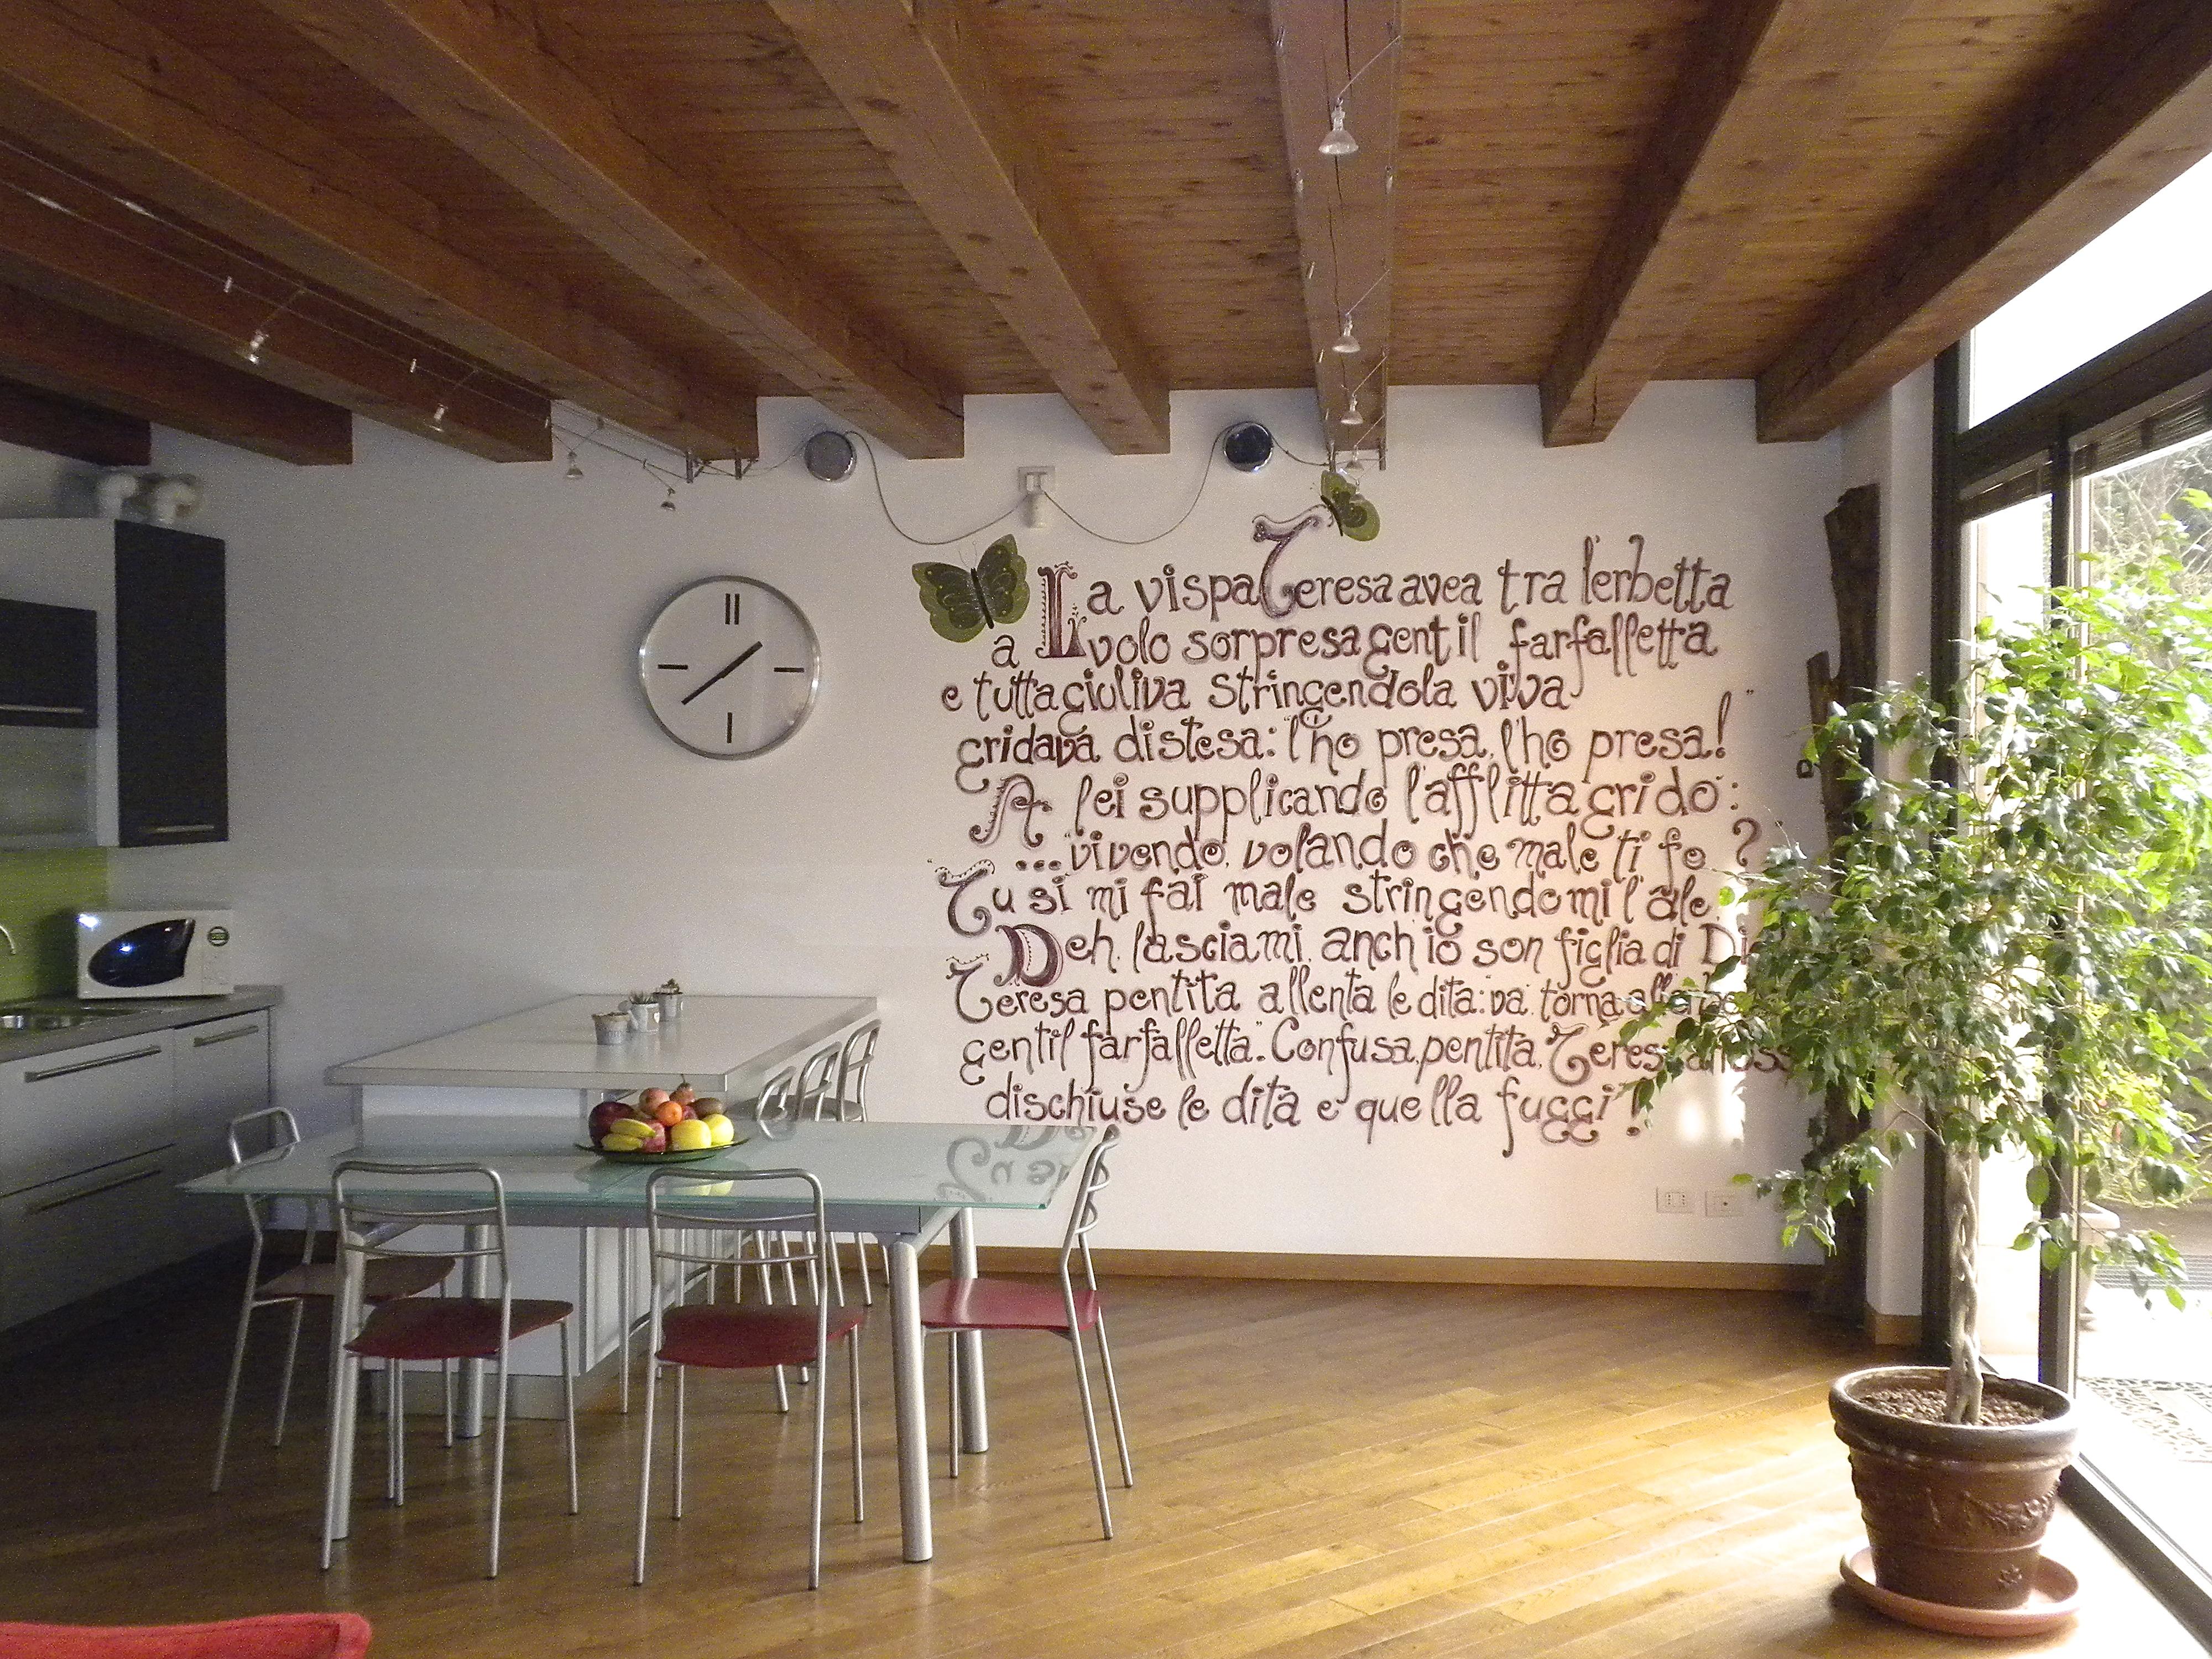 La vispa Teresa avea tra l'erbetta
a volo sorpresa gentil farfalletta
e tutta giuliva stringendola viva
gridava distesa: "l'ho presa, l'ho presa!"
A lei supplicando l'afflitta gridò:
..."vivendo, volando che male ti fo?
Tu sì mi fai male stringendomi l'ale.
Deh, lasciami, anch'io son figlia di
Teresa pentita allenta le dita: "va, torna
gentil farfalletta". Confusa, pentita,
dischiuse le dita e quella fuggì!